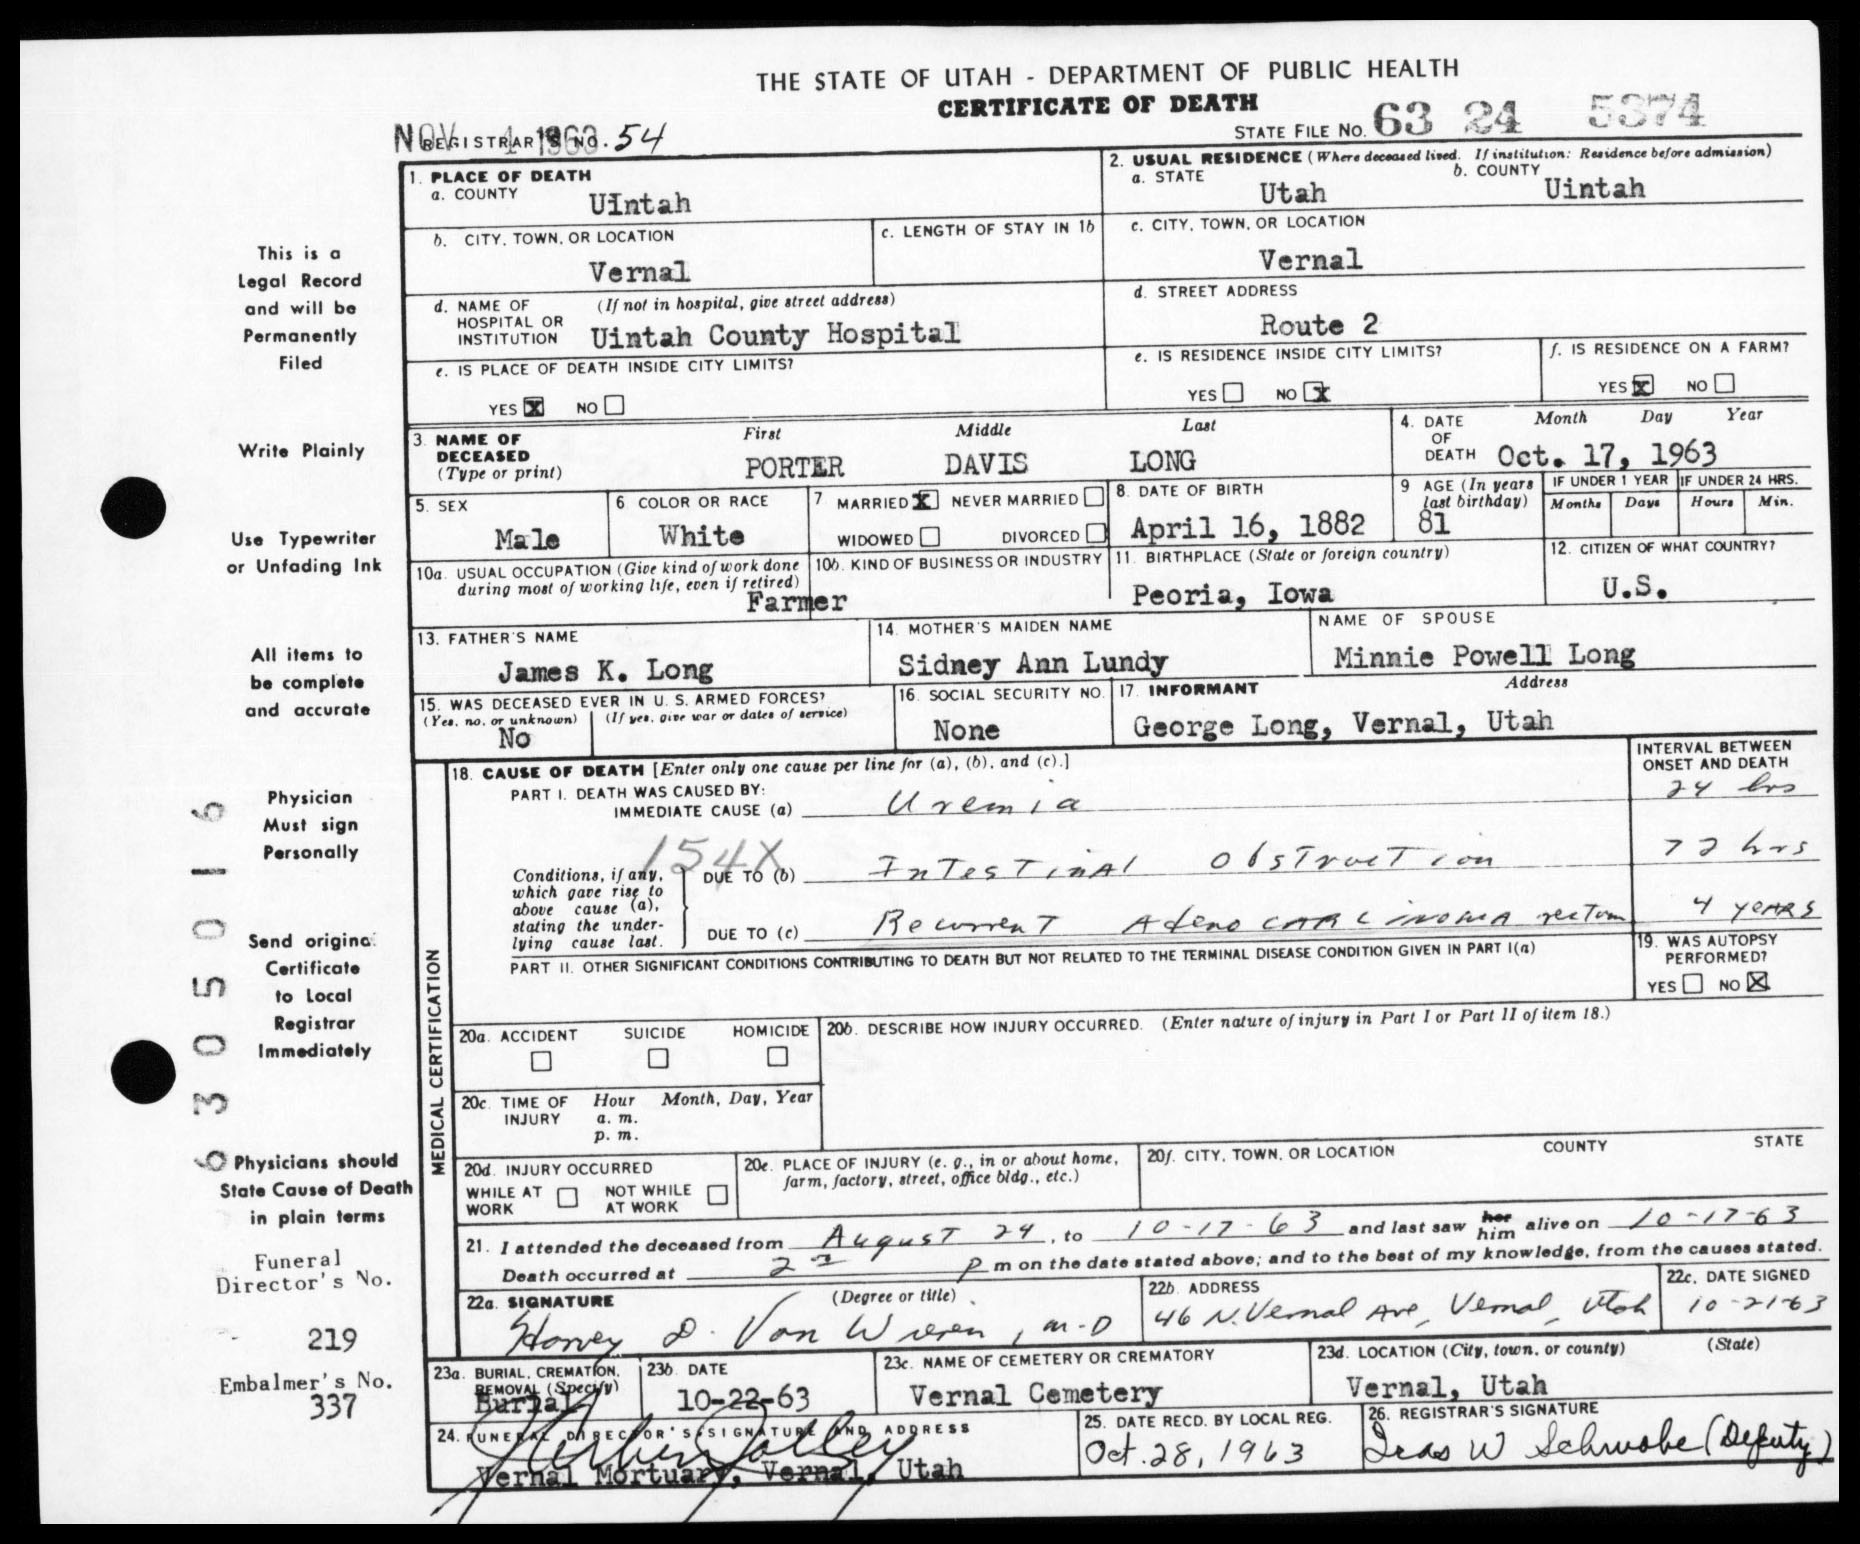 THE STATE OF UTAH - DEPARTMENT OF PUBLIC HEALTH
CERTIFICATE OF DEATH
NOV 1 1963
REGISTRAR'S NO. 54
STATE FILE NO. 63 24 5374
1. PLACE OF DEATH
a. COUNTY
UIntah
2. USUAL RESIDENCE (Where deceased lived. If institution: Residence before admission)
a. STATE
Utah
b. COUNTY
Uintah
b. CITY, TOWN, OR LOCATION
Vernal
c. LENGTH OF STAY IN 1b
c. CITY, TOWN, OR LOCATION
Vernal
d. NAME OF HOSPITAL OR INSTITUTION
(If not in hospital, give street address)
Uintah County Hospital
d. STREET ADDRESS
Route 2
e. IS PLACE OF DEATH INSIDE CITY LIMITS?
YES X NO
e. IS RESIDENCE INSIDE CITY LIMITS?
YES NO X
f. IS RESIDENCE ON A FARM?
YES X NO
3. NAME OF DECEASED
(Type or print)
First Middle Last
PORTER DAVIS LONG
4. DATE OF DEATH
Month Day Year
Oct. 17, 1963
5. SEX
Male
6 COLOR OR RACE
White
7 MARRIED X NEVER MARRIED
WIDOWED DIVORCED
8. DATE OF BIRTH
April 16, 1882
9 AGE (In years last birthday)
81
IF UNDER 1 YEAR
Months Days
IF UNDER 24 HRS.
Hours Min.
10a. USUAL OCCUPATION (Give kind of work done
during most of working life, even if retired)
Farmer
10b. KIND OF BUSINESS OR INDUSTRY
11. BIRTHPLACE (State or foreign country)
Peoria, Iowa
12. CITIZEN OF WHAT COUNTRY?
U.S.
13. FATHER'S NAME
James K. Long
14. MOTHER'S MAIDEN NAME
Sidney Ann Lundy
NAME OF SPOUSE
Minnie Powell Long
15. WAS DECEASED EVER IN U. S. ARMED FORCES?
(Yes, no, or unknown) (If yes, give war or dates of service)
No
16. SOCIAL SECURITY NO.
None
17. INFORMANT Address
George Long, Vernal, Utah
MEDICAL CERTIFICATION
18. CAUSE OF DEATH [Enter only one cause per line for (a), (b), and (c).]
INTERVAL BETWEEN
ONSET AND DEATH
PART I. DEATH WAS CAUSED BY:
IMMEDIATE CAUSE (a) Uremia 24 hrs
154X
Conditions, if any,
which gave rise to
above cause (a),
stating the under-
lying cause last.
DUE TO (b) Intestinal obstruction 72 hrs
DUE TO (c) Recurrent Adenocarcinoma rectum 4 years
PART II. OTHER SIGNIFICANT CONDITIONS CONTRIBUTING TO DEATH BUT NOT RELATED TO THE TERMINAL DISEASE CONDITION GIVEN IN PART I(a)
19. WAS AUTOPSY
PERFORMED?
YES NO X
20a. ACCIDENT SUICIDE HOMICIDE
20b. DESCRIBE HOW INJURY OCCURRED. (Enter nature of injury in Part I or Part II of item 18.)
20c. TIME OF INJURY
Hour Month, Day, Year
a. m.
p. m.
20d. INJURY OCCURRED
WHILE AT WORK NOT WHILE AT WORK
20e. PLACE OF INJURY (e. g., in or about home,
farm, factory, street, office bldg., etc.)
20f. CITY, TOWN, OR LOCATION COUNTY STATE
21. I attended the deceased from August 24, to 10-17-63 and last saw her him alive on 10-17-63
Death occurred at P m on the date stated above; and to the best of my knowledge, from the causes stated.
22a. SIGNATURE (Degree or title)
Harvey D. Van Wieren, M-D
22b. ADDRESS
46 N. Vernal Ave, Vernal, Utah
22c. DATE SIGNED
10-21-63
23a. BURIAL, CREMATION,
REMOVAL (Specify)
Burial
23b. DATE
10-22-63
23c. NAME OF CEMETERY OR CREMATORY
Vernal Cemetery
23d. LOCATION (City, town, or county) (State)
Vernal, Utah
24. FUNERAL DIRECTOR'S SIGNATURE AND ADDRESS
Vernal Mortuary, Vernal, Utah
25. DATE RECD. BY LOCAL REG.
Oct. 28, 1963
26. REGISTRAR'S SIGNATURE
W Schwabe (Deputy)
This is a
Legal Record
and will be
Permanently
Filed
Write Plainly
Use Typewriter
or Unfading Ink
All items to
be complete
and accurate
Physician
Must sign
Personally
Send original
Certificate
to Local
Registrar
Immediately
Physicians should
State Cause of Death
in plain terms
Funeral
Director's No.
219
Embalmer's No.
337
6305016